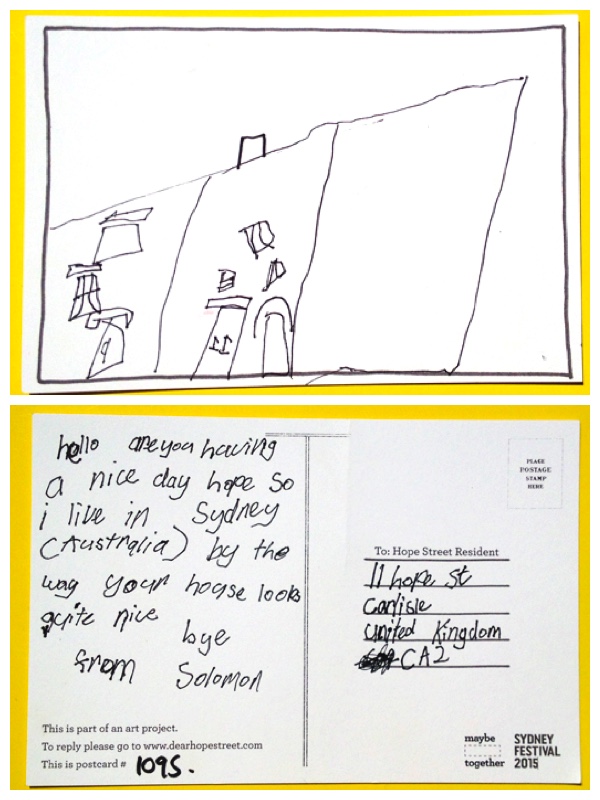 11
9
hello are you having
a nice day hope so
i live in Sydney
(Australia) by the
way your house looks
quite nice
bye
from Solomon
This is part of an art project.
To reply please go to www.dearhopestreet.com
This is postcard # 1095.
PLACE
POSTAGE
STAMP
HERE
To: Hope Street Resident
11 hope st
Carlisle
United Kingdom
CA2
maybe
together
SYDNEY
FESTIVAL
2015